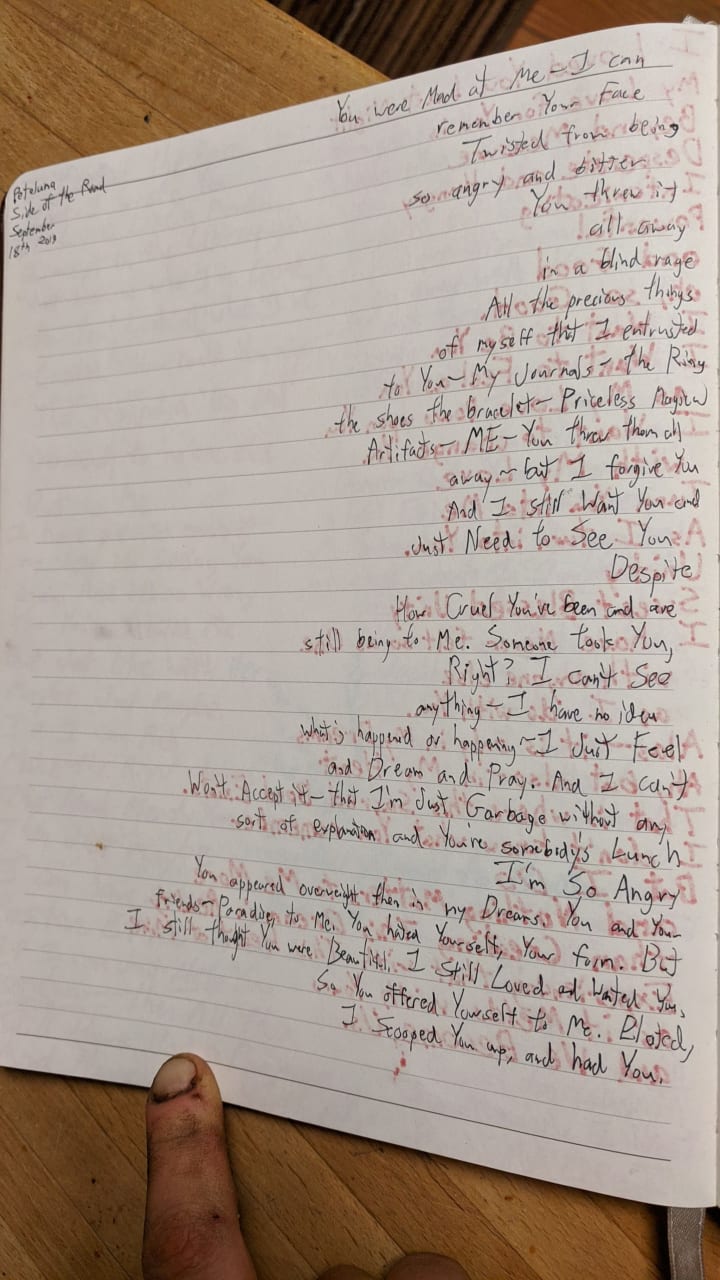 You were Mad at Me - I can
remember Your Face
Twisted from being
so angry and bitter
You threw it
all away
in a blind rage
All the precious things
of myself that I entrusted
to You - My Journals - the Ring
the shoes the bracelet - Priceless Magical
Artifacts - ME - You threw them all
away - but I forgive You
And I still Want You and
Just Need to See You
Despite
How Cruel You've been and are
still being to Me. Someone took You,
Right? I can't See
anything - I have no idea
what's happend or happening - I Just Feel
and Dream and Pray. And I can't
Won't Accept it - that I'm Just Garbage without any
sort of explanation and You're somebody's Lunch
I'm So Angry
You appeared overweight then in my Dreams. You and Your
friends - Paradise, to Me. You hated Yourself, Your form. But
I still thought You were Beautiful. I Still Loved and Wanted You,
So You offered Yourself to Me. Bloated,
I scooped You up, and had You.
Petaluma
Side of the Road
September
18th 2019